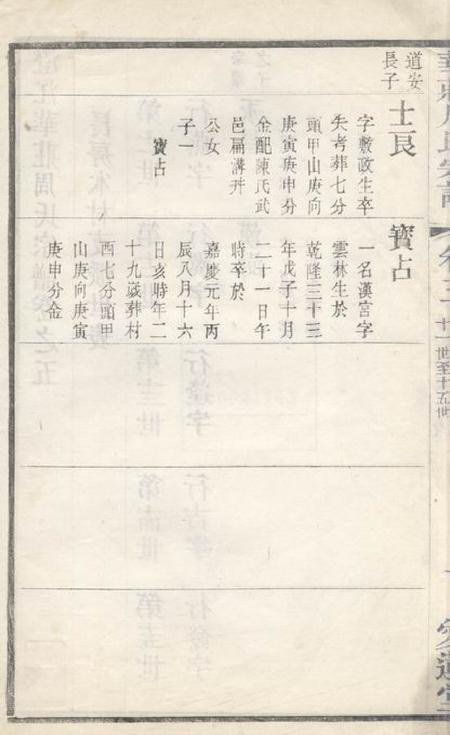 道安
長子
士良
字敷政生卒
失考葬七分
頭甲山庚向
庚寅庚申分
金配陳氏武
邑扁溝幷
公女
子一
寳占
寳占
一名漢宫字
雲林生於
乾隆三十三
年戊子十月
二十一日午
時卒於
嘉慶元年丙
辰八月十六
日亥時年二
十九歲葬村
西七分頭甲
山庚向庚寅
庚申分金
卷之五
十一世至十五世